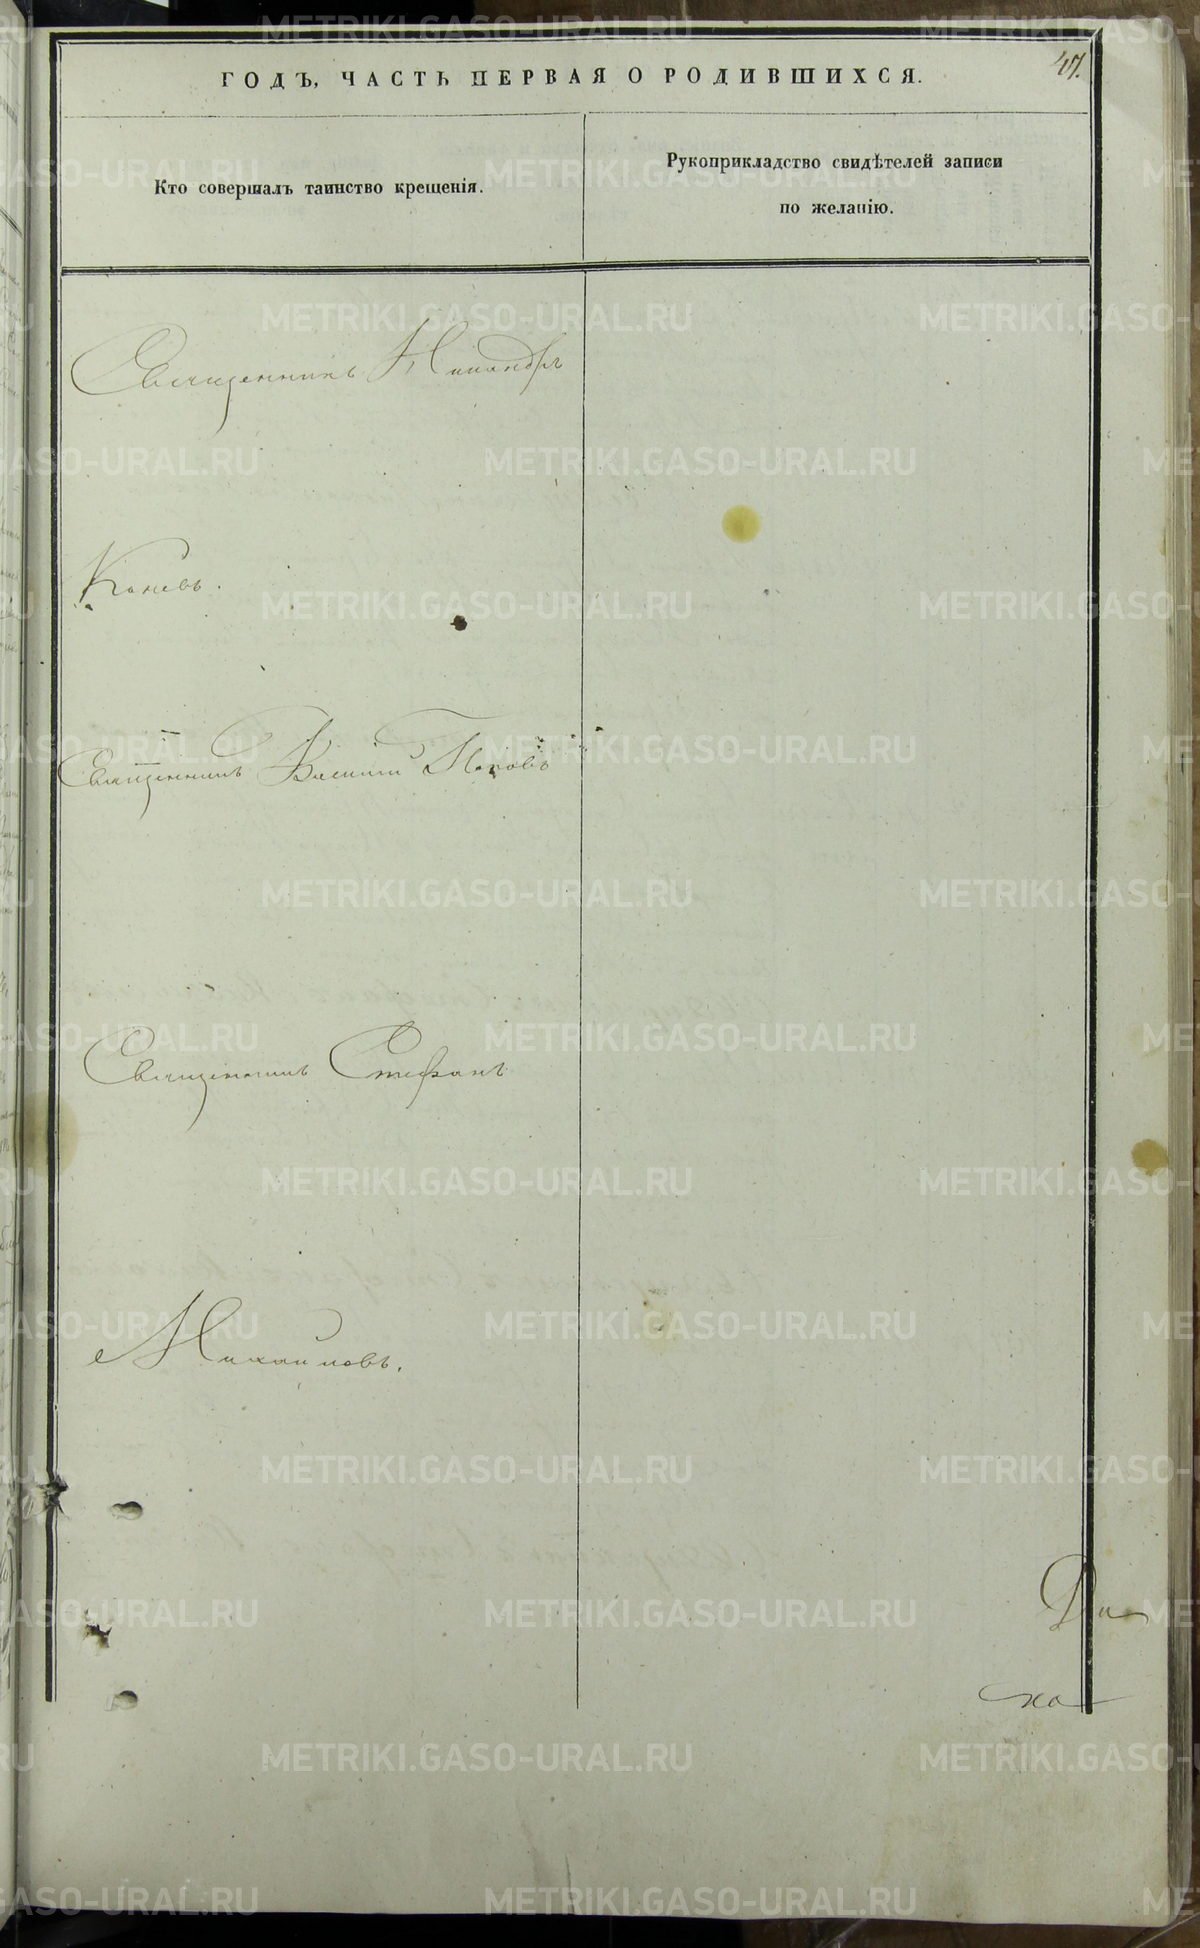 47.
ГОДЪ, ЧАСТЬ ПЕРВАЯ О РОДИВШИХСЯ.
Кто совершалъ таинство крещенія.
Рукоприкладство свидѣтелей записи
по желанію.
Священникъ Никандръ
Коневъ.
Священникъ Василій Поповъ
Священникъ Стефанъ
Михайловъ.
METRIKI.GASO-URAL.RU